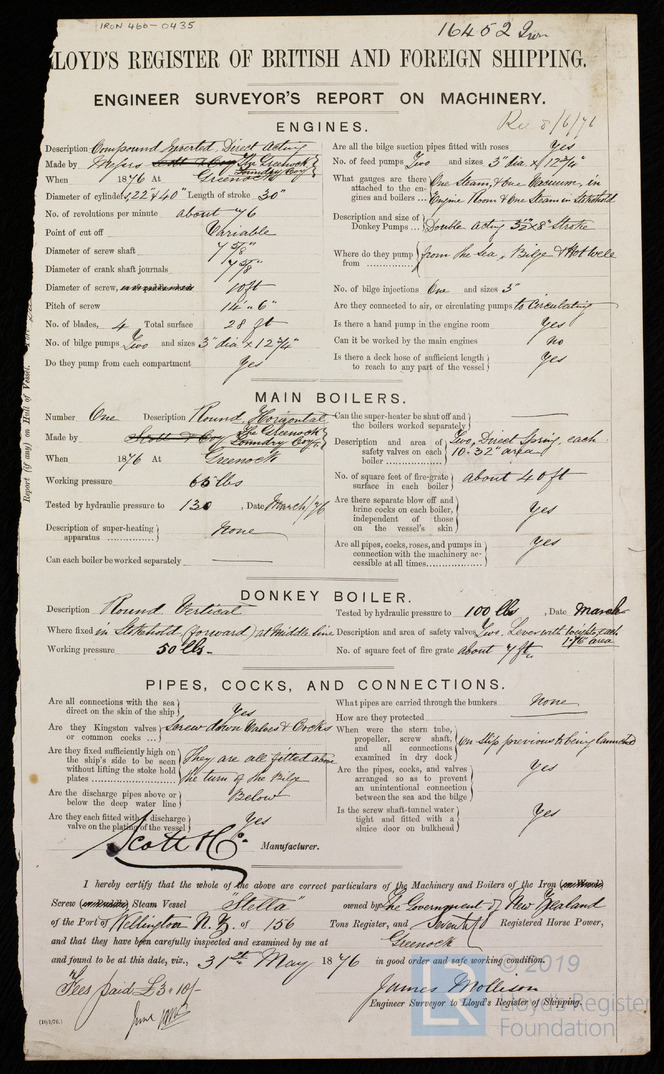 IRON 460-0435
16452 Iron
LLOYD'S REGISTER OF BRITISH AND FOREIGN SHIPPING.
ENGINEER SURVEYOR'S REPORT ON MACHINERY.
Rec 8/6/76
ENGINES.
Description Compound Inverted, Direct Acting
Made by Messrs Scott & Coy The Greenock Foundry Coy
When 1876 At Greenock
Diameter of cylinders, 22 & 40" Length of stroke 30"
No. of revolutions per minute about 76
Point of cut off Variable
Diameter of screw shaft 7 5/8"
Diameter of crank shaft journals 7 5/8"
Diameter of screw, 10 ft
Pitch of screw 14'-6"
No. of blades, 4 Total surface 28 ft
No. of bilge pumps Two and sizes 3" dia x 12 3/4"
Do they pump from each compartment Yes
Are all the bilge suction pipes fitted with roses Yes
No. of feed pumps Two and sizes 3" dia x 12 3/4"
What gauges are there attached to the engines and boilers One Steam, & one Vacuum, in Engine Room & One Steam in Stokehold
Description and size of Donkey Pumps Double acting x 8" Stroke
Where do they pump from From the Sea, Bilge & Hotwell
No. of bilge injections One and sizes 3"
Are they connected to air, or circulating pumps to Circulating
Is there a hand pump in the engine room Yes
Can it be worked by the main engines no
Is there a deck hose of sufficient length to reach to any part of the vessel Yes
Report (if any) on Hull of Vessel.
MAIN BOILERS.
Number One Description Round, Horizontal
Made by Scott & Coy The Greenock Foundry Coy
When 1876 At Greenock
Working pressure 65 lbs
Tested by hydraulic pressure to 130, Date March/76
Description of super-heating apparatus None
Can each boiler be worked separately
Can the super-heater be shut off and the boilers worked separately
Description and area of safety valves on each boiler Two, Direct Spring, each 10.32" area
No. of square feet of fire-grate surface in each boiler about 40 ft
Are there separate blow off and brine cocks on each boiler, independent of those on the vessel's skin Yes
Are all pipes, cocks, roses, and pumps in connection with the machinery accessible at all times Yes
DONKEY BOILER.
Description Round Vertical
Where fixed in Stokehold (forward) at Middle line
Working pressure 50 lbs
Tested by hydraulic pressure to 100 lbs, Date March
Description and area of safety valves Two. Lever with weights each area
No. of square feet of fire grate about 7 ft
PIPES, COCKS, AND CONNECTIONS.
Are all connections with the sea direct on the skin of the ship Yes
Are they Kingston valves or common cocks Screw down Valves & Cocks
Are they fixed sufficiently high on the ship's side to be seen without lifting the stoke hold plates They are all fitted above the turn of the Bilge
Are the discharge pipes above or below the deep water line Below
Are they each fitted with a discharge valve on the plating of the vessel Yes
What pipes are carried through the bunkers None
How are they protected
When were the stern tube, propeller, screw shaft, and all connections examined in dry dock on slip previous to being launched
Are the pipes, cocks, and valves arranged so as to prevent an unintentional connection between the sea and the bilge Yes
Is the screw shaft-tunnel water tight and fitted with a sluice door on bulkhead Yes
Scott & Co. Manufacturer.
I hereby certify that the whole of the above are correct particulars of the Machinery and Boilers of the Iron (or Wood)
Screw (or Paddle) Steam Vessel "Stella" owned by The Government of New Zealand
of the Port of Wellington N.Z. of 156 Tons Register, and Seventy Registered Horse Power,
and that they have been carefully inspected and examined by me at Greenock
and found to be at this date, viz., 31st May 1876 in good order and safe working condition.
Fees paid £3.10/-
June
James Mollison
Engineer Surveyor to Lloyd's Register of Shipping.
© 2019
LR Lloyd's Register
Foundation